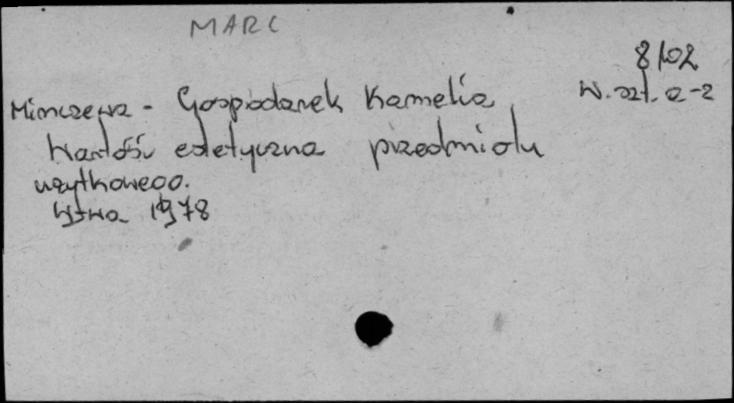 MARC
8/02
W. szt. a-2
Minczewa - Gospodarek Kamelia
Wartość estetyczna przedmiotu
użytkowego.
W-wa 1978